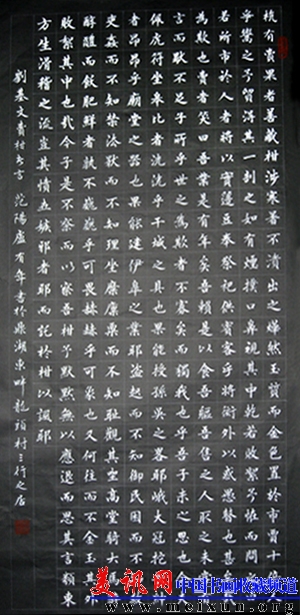 杭有賣果者善藏柑涉寒暑不潰出之燁然玉質而金色置於市賈十倍人
爭鬻之予貿得其一剖之如有煙撲口鼻視其中乾若敗絮予怪而問之曰
若所市於人者將以實籩豆奉祭祀供賓客乎將衒外以惑愚瞽也甚矣哉
為欺也賣者笑曰吾業是有年矣吾賴是以食吾軀吾售之人取之未嘗有
言而獨不足子所乎世之為欺者不寡矣而獨我也乎吾子未之思也今夫
佩虎符坐皋比者洸洸乎干城之具也果能授孫吳之略耶峨大冠拖長紳
者昂昂乎廟堂之器也果能建伊皋之業耶盜起而不知御民困而不知救
吏姦而不知禁法斁而不知理坐糜廩粟而不知恥觀其坐高堂騎大馬
醉醇醴而飫肥鮮者孰不巍巍乎可畏赫赫乎可象也又何往而不金玉其外
敗絮其中也哉今子是不察而以察吾柑予默默無以應退而思其言類東
方生滑稽之流豈其憤世嫉邪者耶而託於柑以諷耶
劉基文賣柑者言 范陽盧有年書於鼎湖東畔龍頭村三行之居
美讯网 中国书画收藏频道
www.meixun.org